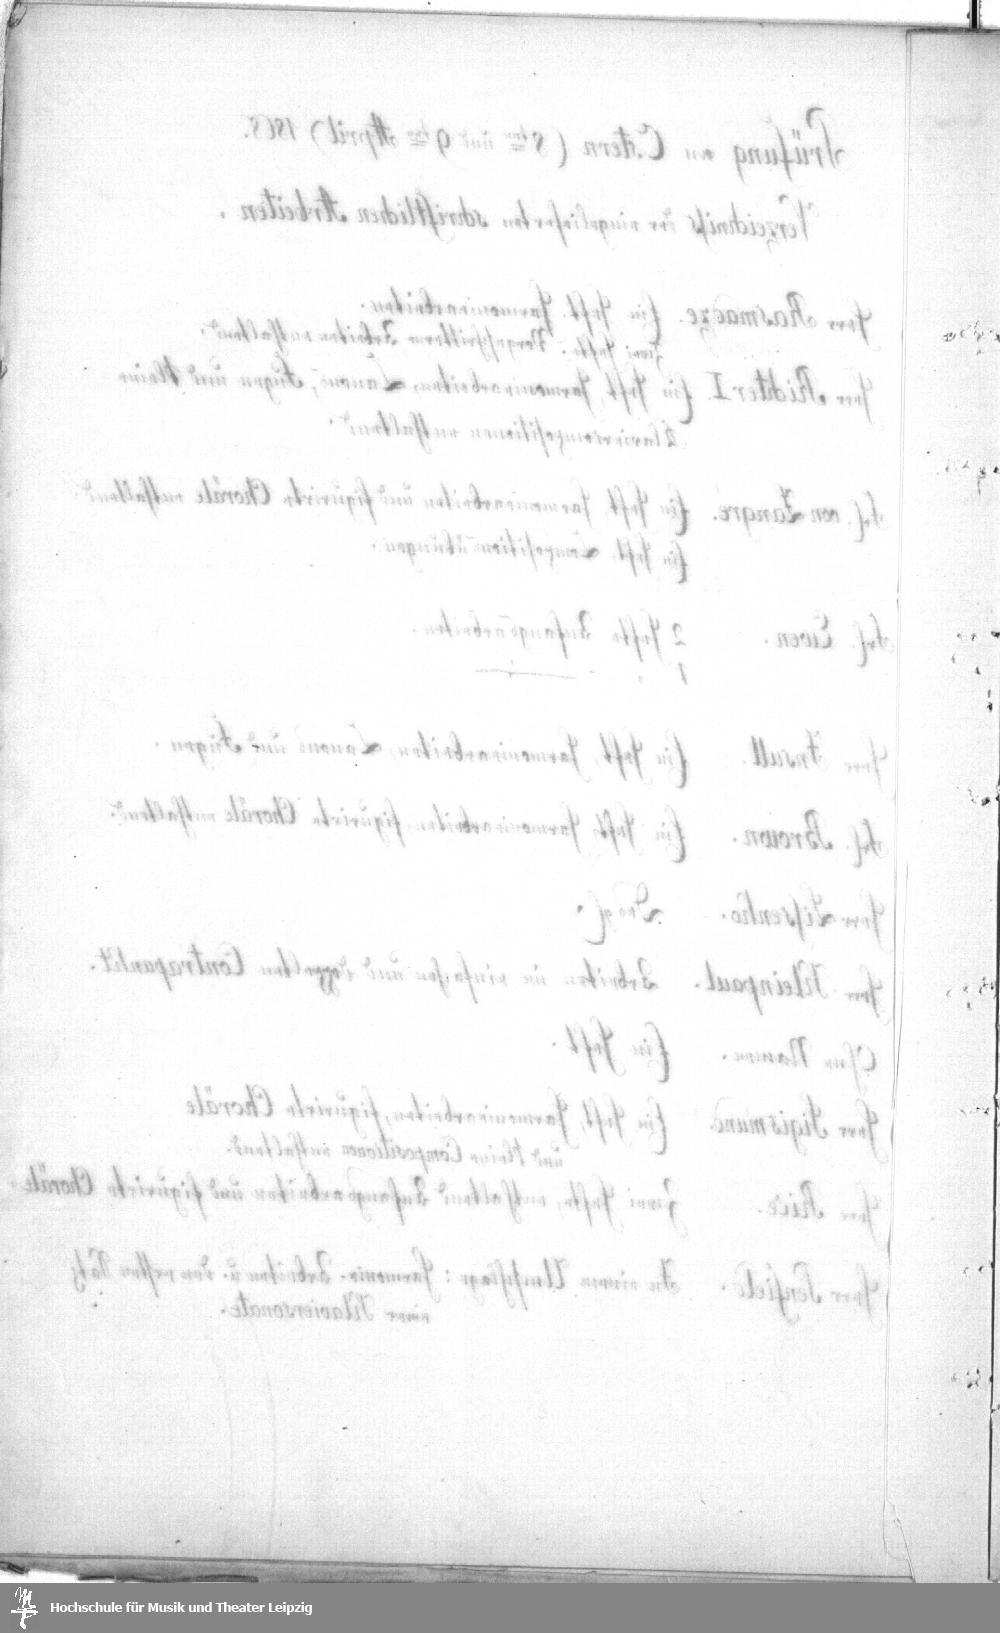 Prüfung zu Ostern (8ten und 9ten April) 1868.
Verzeichniß der eingelieferten schriftlichen Arbeiten.
Herr Ein Heft. Harmoniearbeiten.
Zwei Hefte. Arbeiten enthaltend.
Herr Richter I. Ein Heft, Harmoniearbeiten, Canons, Fugen und kleine
Claviercompositionen enthaltend.
Frl. von Zangré. Ein Heft, Harmoniearbeiten und figurirte Choräle enthaltend.
Ein Heft, Compositionsübungen.
Frl. Ewen. 2 Hefte Anfangsarbeiten.
Herr Insull. Ein Heft, Harmoniearbeiten, Canons und Fugen.
Frl. Brown. Ein Heft, Harmoniearbeiten, figurirte Choräle enthaltend.
Herr Lissenko.
Herr Kleinpaul. Arbeiten im einfachen und doppelten Contrapunkt.
Ohne Namen. Ein Heft.
Herr Sigismund. Ein Heft, Harmoniearbeiten, figurirte Choräle
und kleine Compositionen enthaltend.
Herr Rice. Zwei Hefte, enthaltend Anfangsarbeiten und figurirte Choräle.
Herr Penfield. In einem Umschlage: Harmonie-Arbeiten u. den ersten Satz
einer Klaviersonate.
Hochschule für Musik und Theater Leipzig